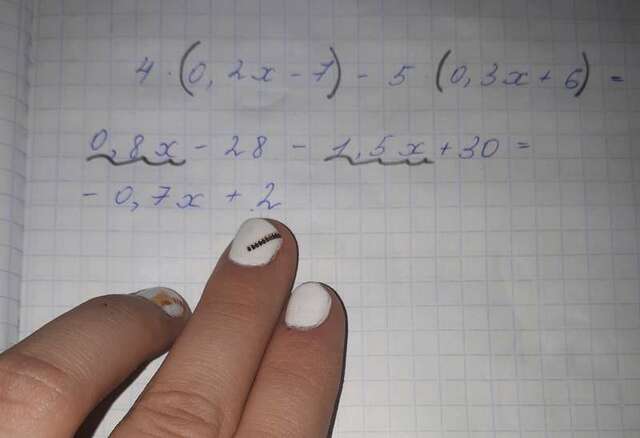 4 · (0,2x - 7) - 5 (0,3x + 6) =
0,8x - 28 - 1,5x + 30 =
- 0,7x + 2